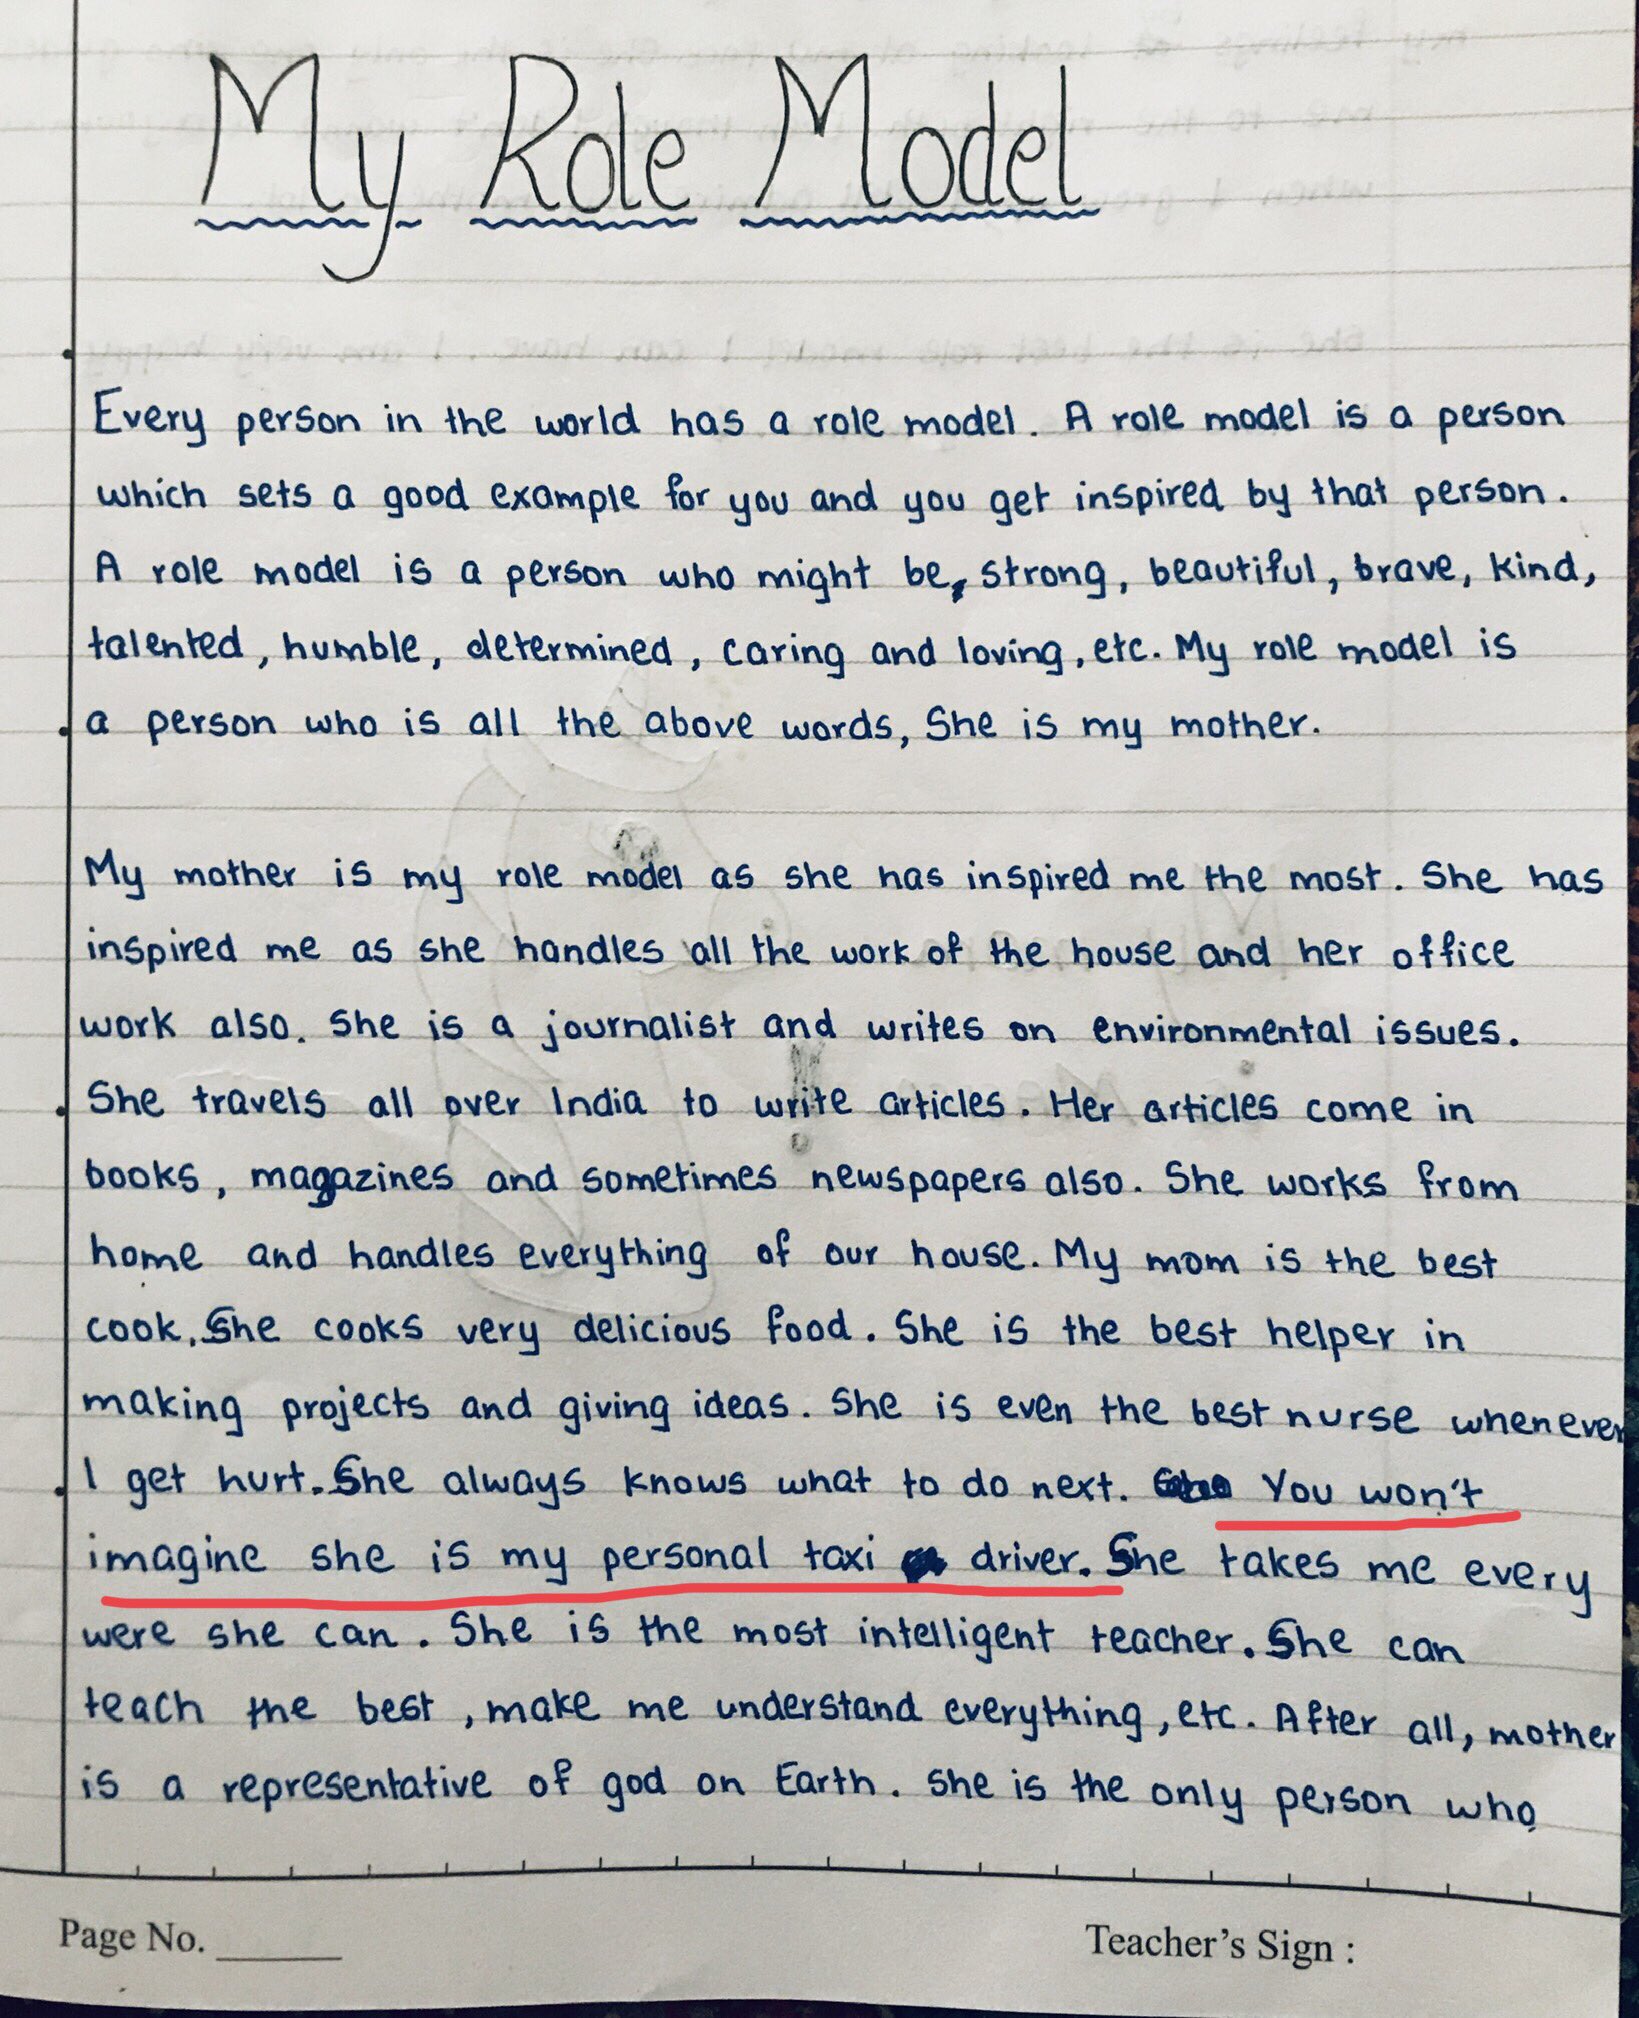 My Role Model
Every person in the world has a role model. A role model is a person
which sets a good example for you and you get inspired by that person.
A role model is a person who might be, strong, beautiful, brave, kind,
talented, humble, determined, caring and loving, etc. My role model is
a person who is all the above words, She is my mother.
My mother is my role model as she has inspired me the most. She has
inspired me as she handles all the work of the house and her office
work also. She is a journalist and writes on environmental issues.
She travels all over India to write articles. Her articles come in
books, magazines and sometimes newspapers also. She works from
home and handles everything of our house. My mom is the best
cook. She cooks very delicious food. She is the best helper in
making projects and giving ideas. She is even the best nurse whenever
I get hurt. She always knows what to do next. You won't
imagine she is my personal taxi driver. She takes me every
were she can. She is the most intelligent teacher. She can
teach the best, make me understand everything, etc. After all, mother
is a representative of god on Earth. She is the only person who
Page No. ______
Teacher's Sign :